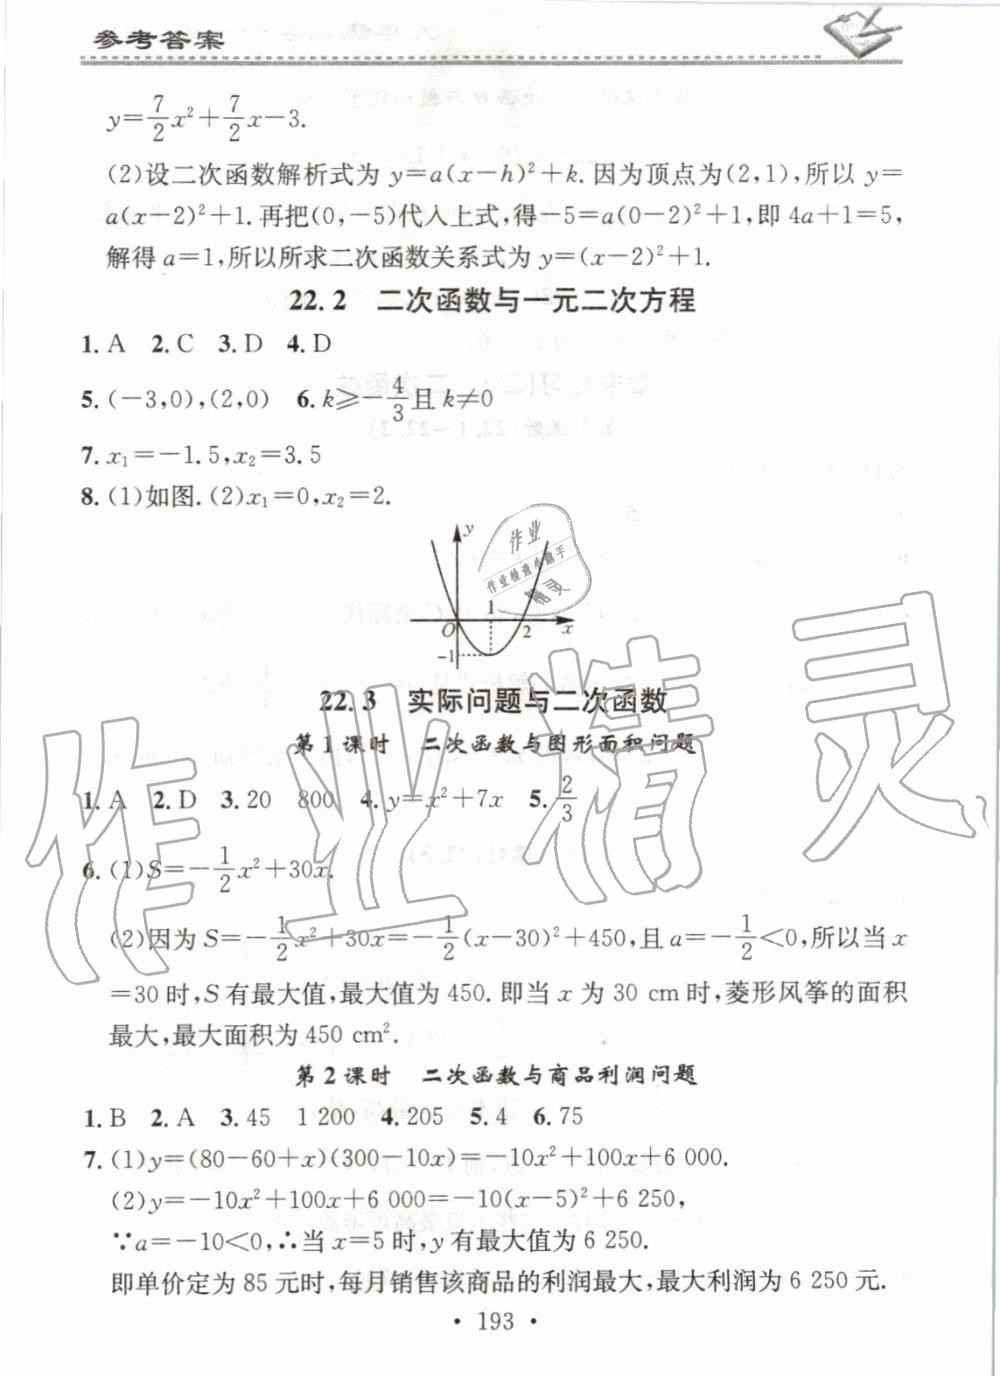 参考答案
y=7/2x²+7/2x-3.
(2)设二次函数解析式为 y=a(x-h)²+k.因为顶点为(2,1),所以 y=
a(x-2)²+1.再把(0,-5)代人上式,得-5=a(0-2)²+1,即 4a+1=5,
解得 a=1,所以所求二次函数关系式为 y=(x-2)²+1.
22.2 二次函数与一元二次方程
1.A 2.C 3.D 4.D
5.(-3,0),(2,0) 6.k≥-4/3且 k≠0
7.x₁=-1.5,x₂=3.5
8.(1)如图.(2)x₁=0,x₂=2.
y
1
O 2 x
-1
作业
作业检查小助手
精灵
22.3 实际问题与二次函数
第1课时 二次函数与图形面积问题
1.A 2.D 3.20 800 4.y=x²+7x 5.2/3
6.(1)S=-1/2x²+30x.
(2)因为 S=-1/2x²+30x=-1/2(x-30)²+450,且 a=-1/2<0,所以当 x
=30 时,S 有最大值,最大值为 450.即当 x 为 30 cm 时,菱形风筝的面积
最大,最大面积为 450 cm².
作业精灵
第2课时 二次函数与商品利润问题
1.B 2.A 3.45 1 200 4.205 5.4 6.75
7.(1)y=(80-60+x)(300-10x)=-10x²+100x+6 000.
(2)y=-10x²+100x+6 000=-10(x-5)²+6 250,
∵a=-10<0,∴当 x=5 时,y 有最大值为 6 250.
即单价定为 85 元时,每月销售该商品的利润最大,最大利润为 6 250 元.
·193·